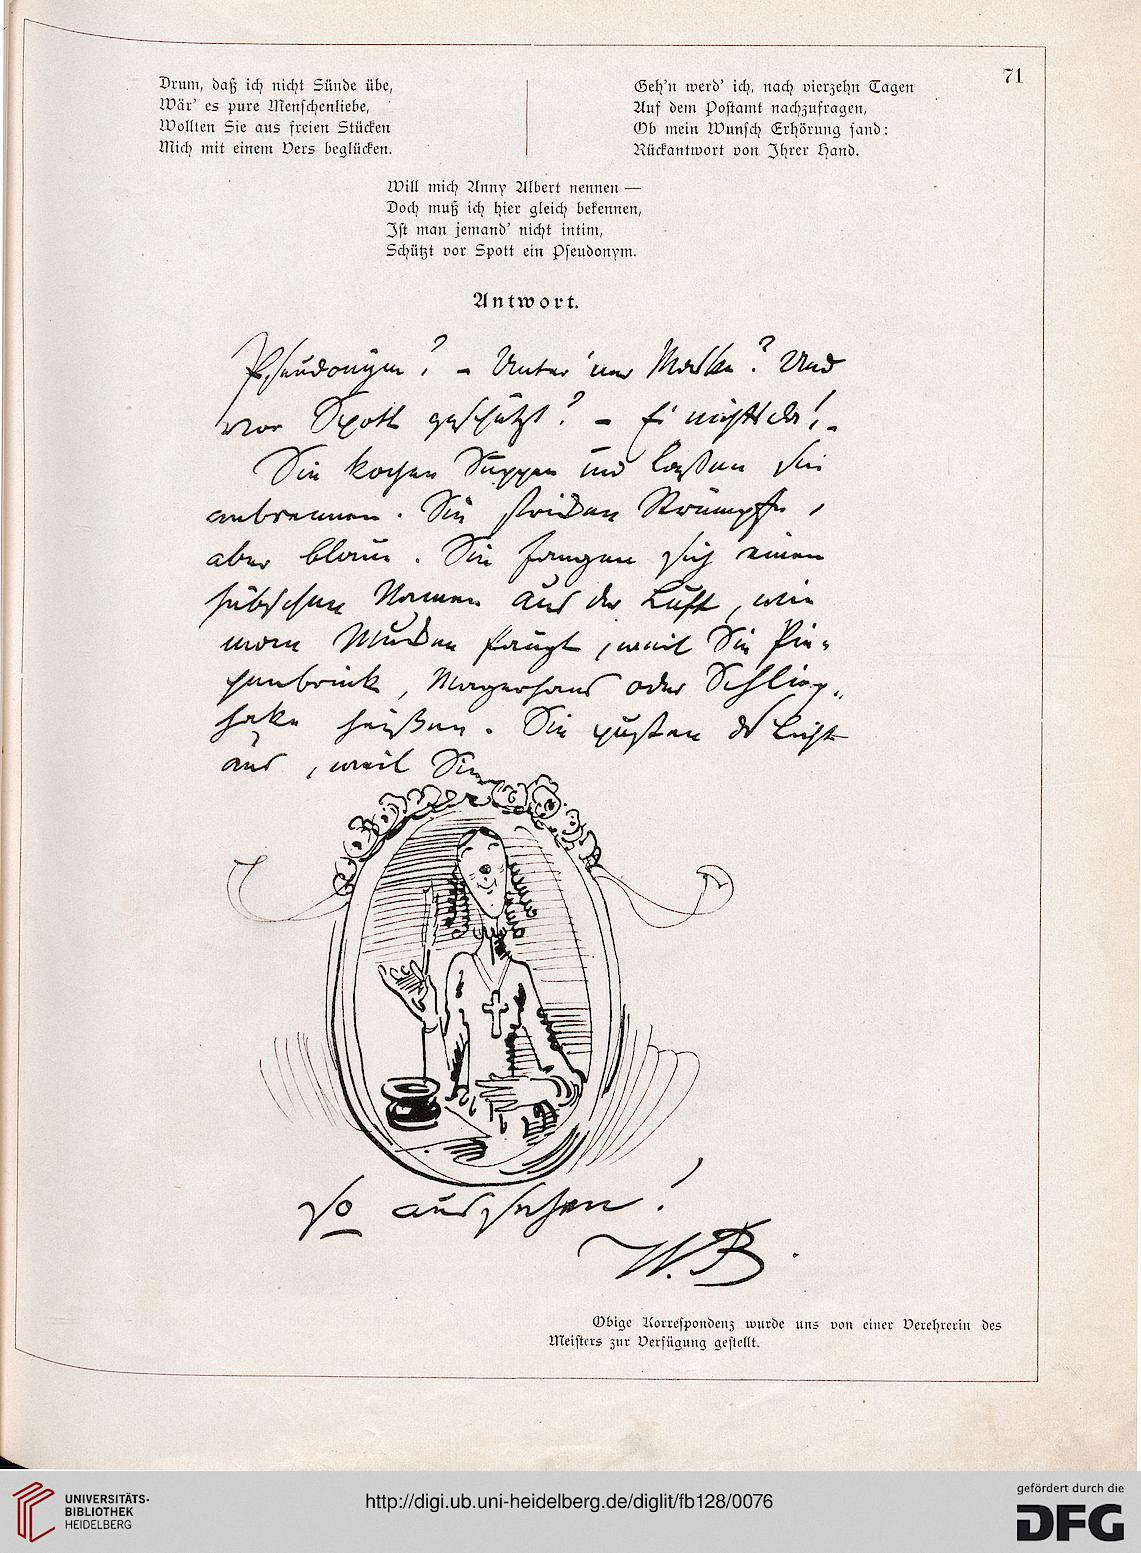 71
Drum, daß ich nicht Sünde übe,
Wär' es pure Menschenliebe,
Wollten Sie aus freien Stücken
Mich mit einem Vers beglücken.
Geh'n werd' ich, nach vierzehn Tagen
Auf dem Postamt nachzufragen,
Ob mein Wunsch Erhörung fand:
Rückantwort von Ihrer Hand.
Will mich Anny Albert nennen —
Doch muß ich hier gleich bekennen,
Ist man jemand' nicht intim,
Schützt vor Spott ein Pseudonym.
Antwort.
Pseudonym? – Unter 'ner Maske? Und
vor Spott geschützt? – Ei nichts da! –
Sie kochen Suppen und laßen sie
anbrennen. Sie stricken Strümpfe,
aber blaue. Sie fangen sich einen
hübschen Namen aus der Luft, wie
man Mucken fängt, weil Sie Pie-
penbrink, Magerhans oder Schlicp-
hake heißen. Sie pusten 's Licht
aus, weil Sie
so aussehen!
W. B.
Obige Korrespondenz wurde uns von einer Verehrerin des
Meisters zur Verfügung gestellt.
UNIVERSITÄTS-
BIBLIOTHEK
HEIDELBERG
http://digi.ub.uni-heidelberg.de/diglit/fb128/0076
gefördert durch die
DFG